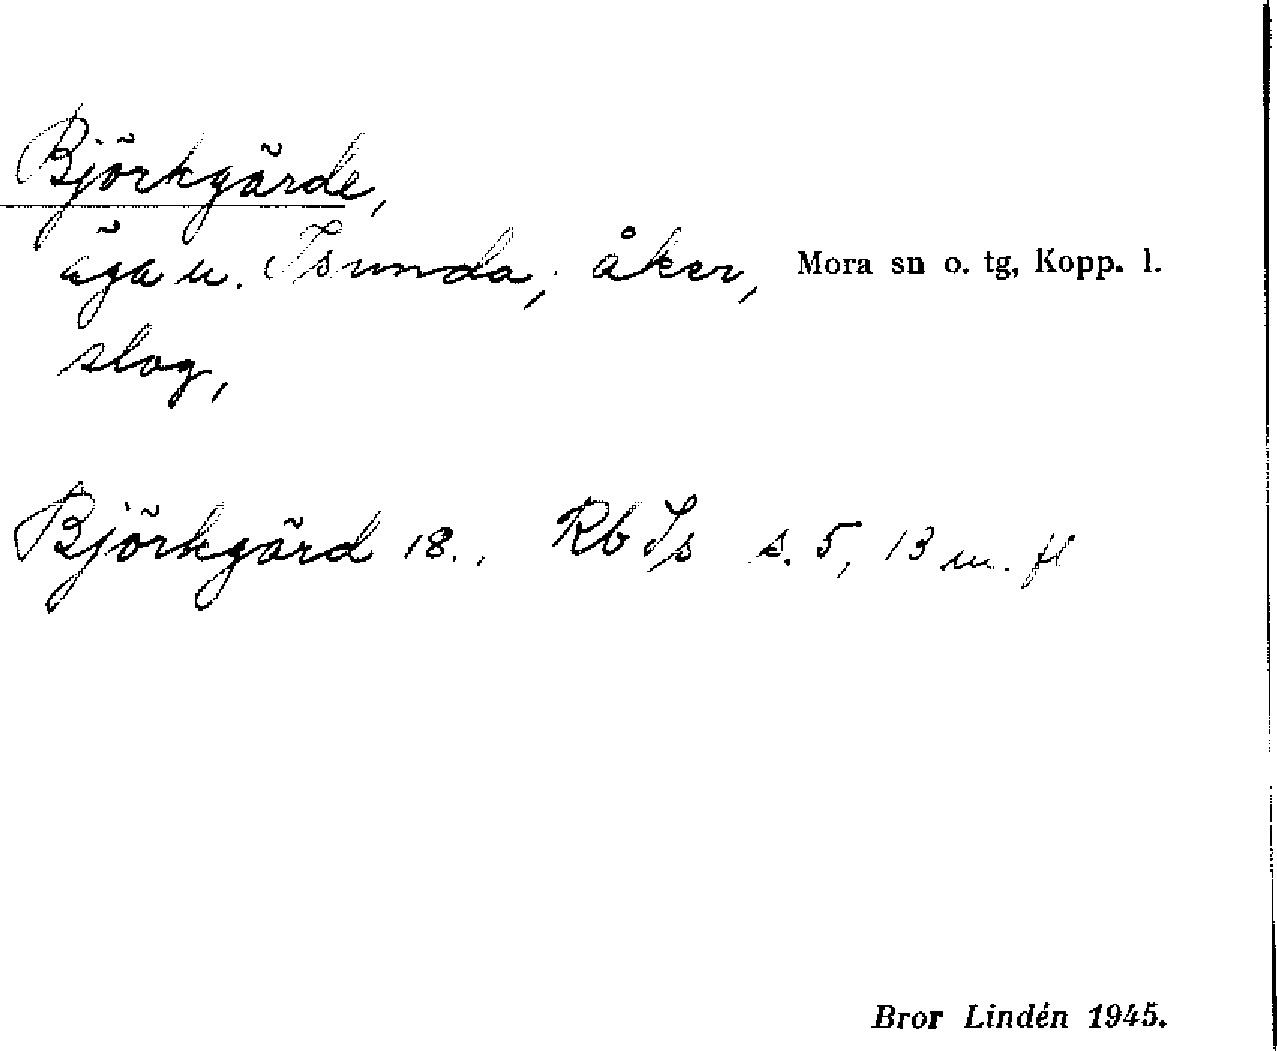 Björkgärde,
äga u. Isunda, åker, Mora sn o. tg, Kopp. l.
slog,
Björkgärd 18., Rb Is s. 5, 13 m. fl
Bror Lindén 1945.